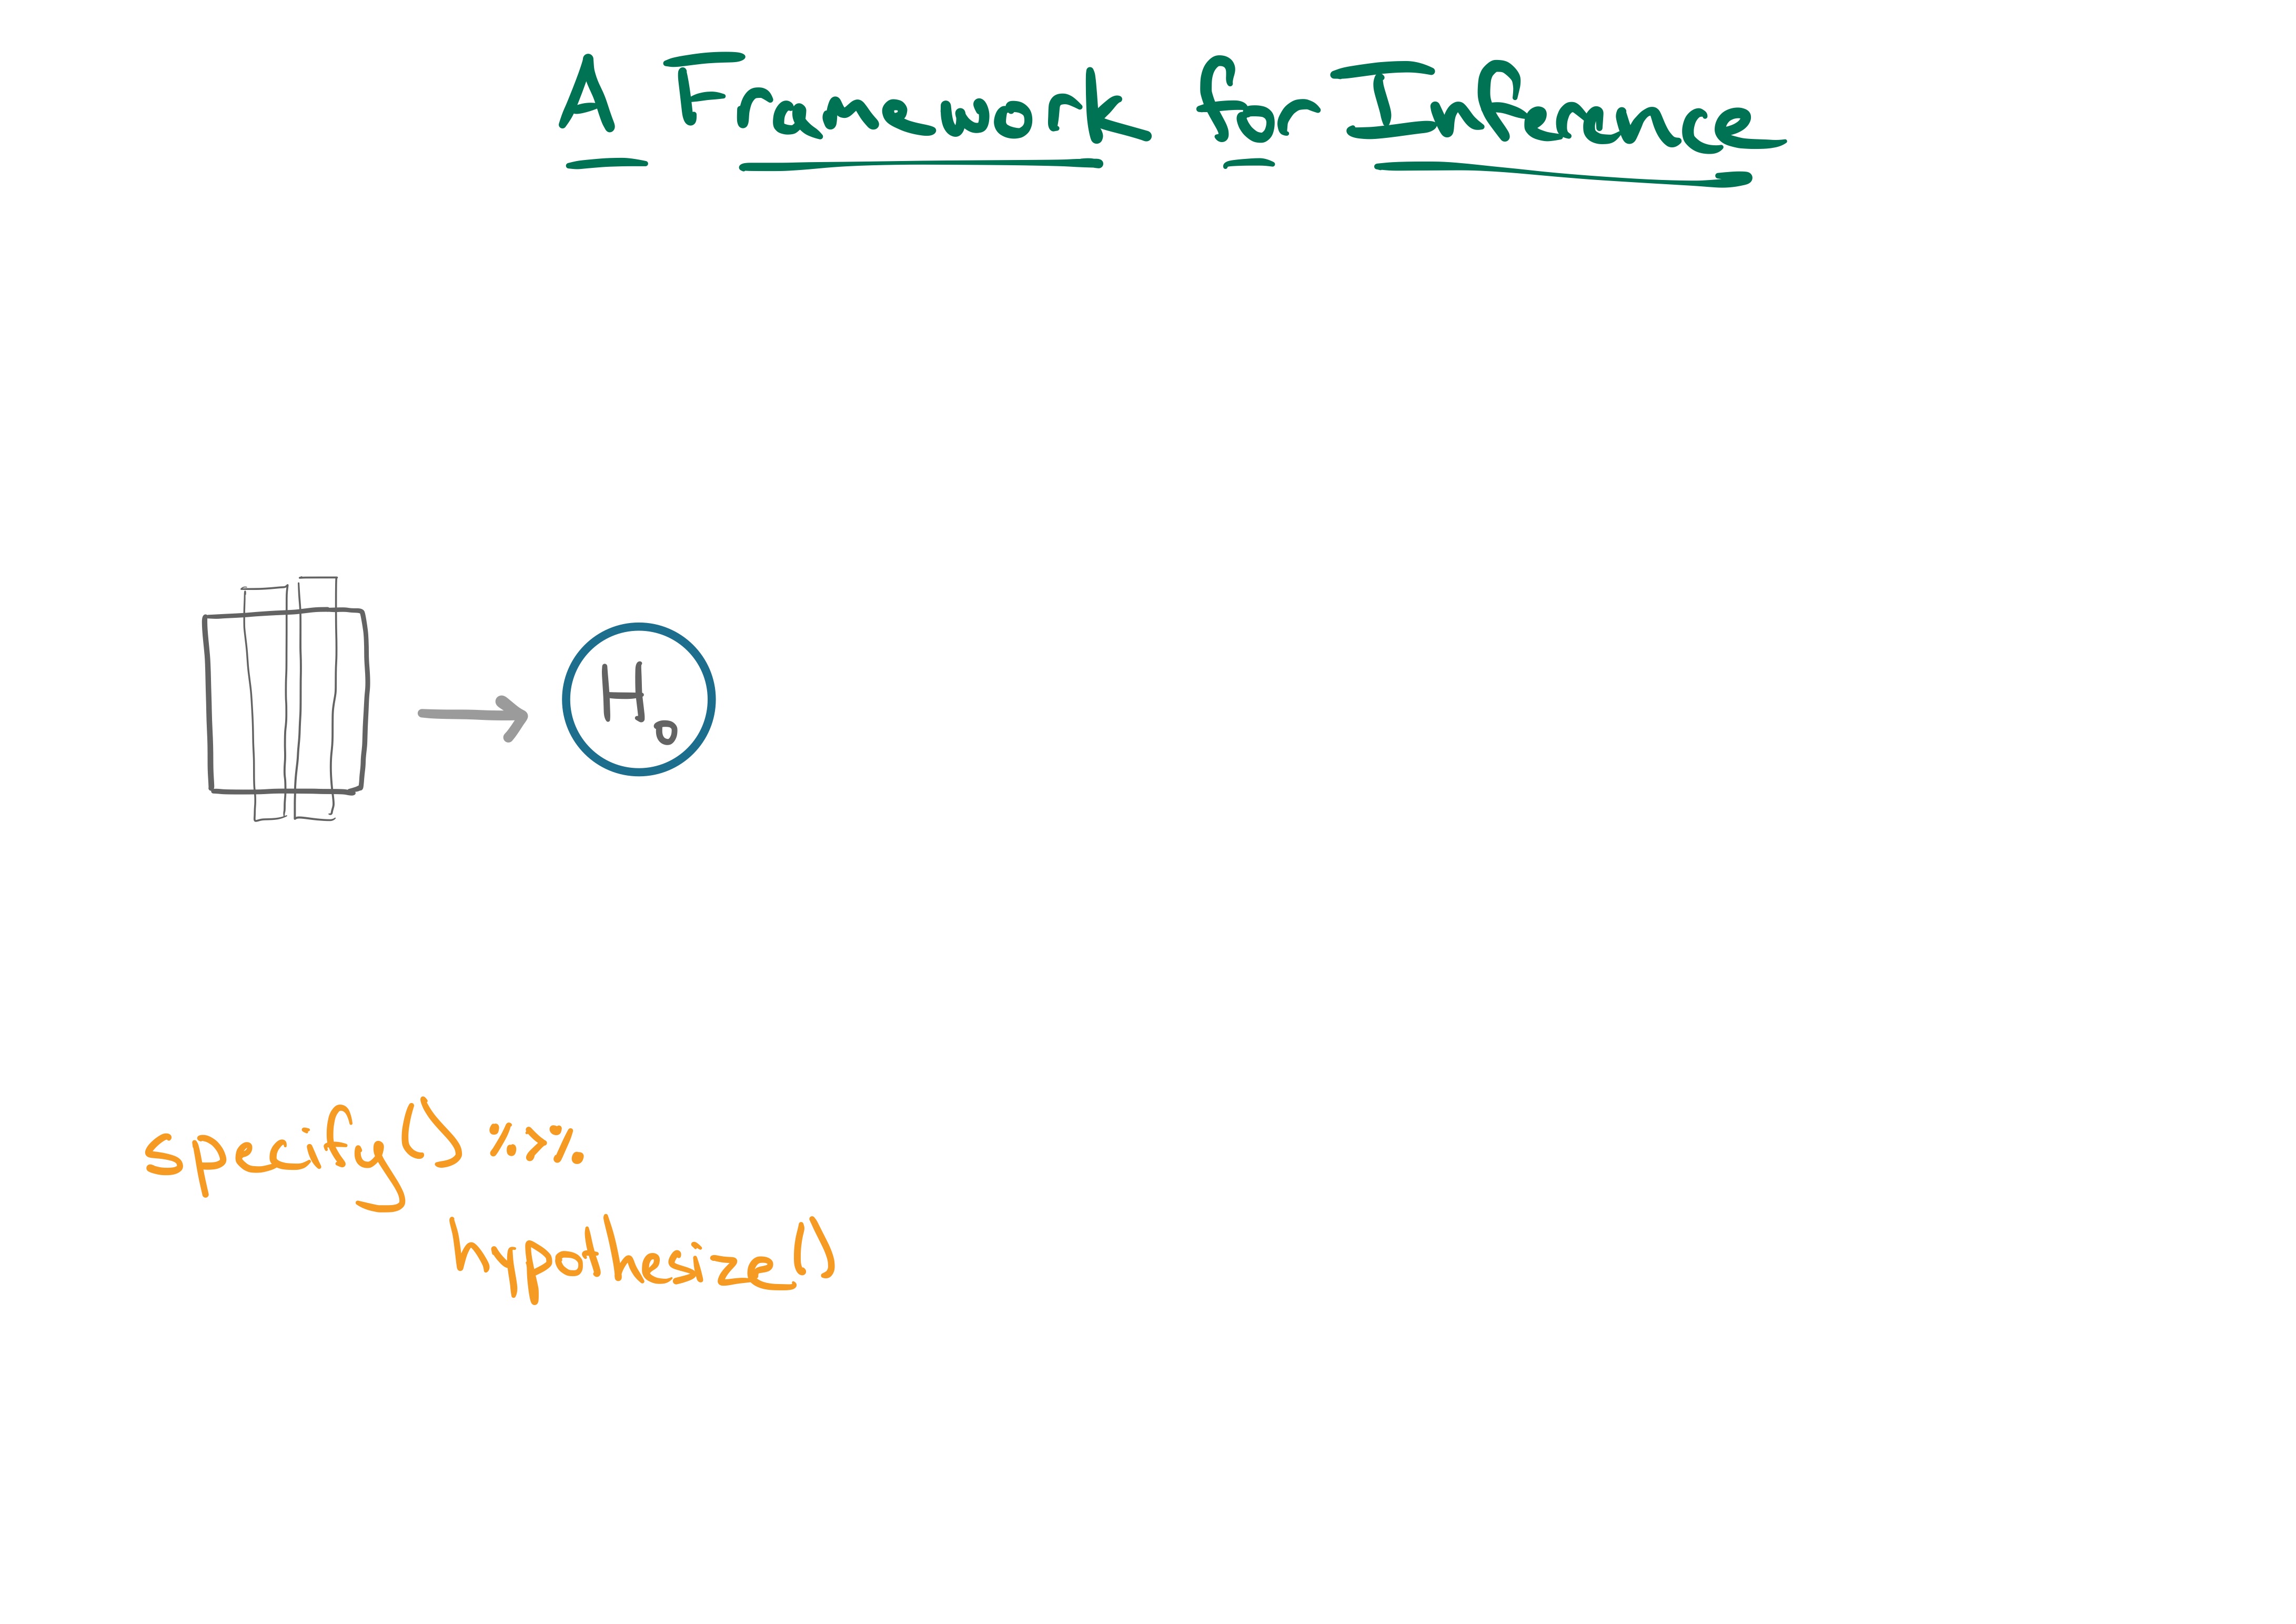 A Framework for Inference
H0
specify() %>%
hypothesize()